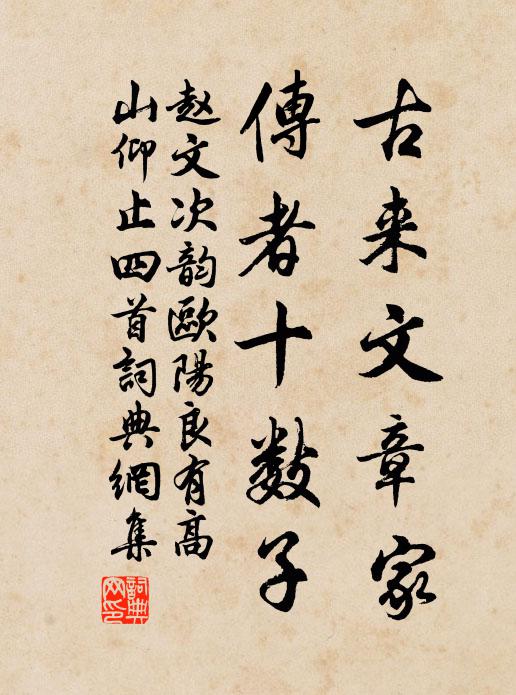 古来文章家
傳者十數子
赵文次韵歐陽良有高
山仰止四首詞典網集
詞典网印